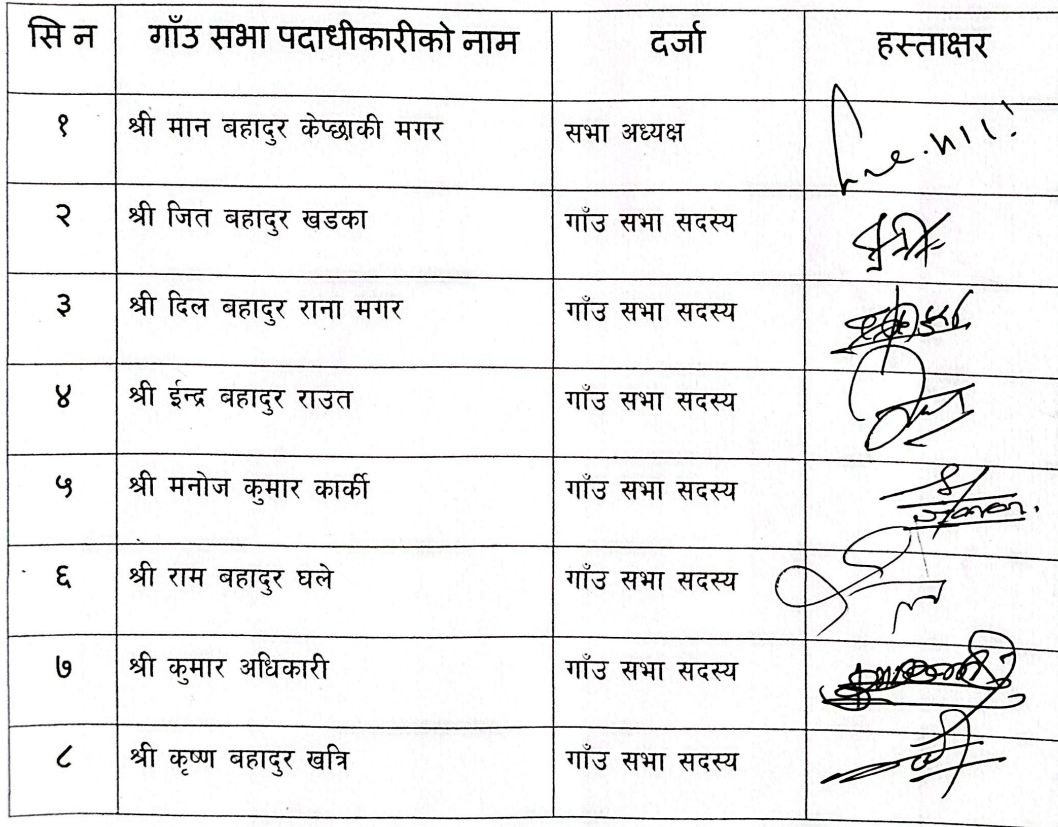 सि न गाँउ सभा पदाधीकारीको नाम दर्जा हस्ताक्षर
१ श्री मान बहादुर केप्छाकी मगर सभा अध्यक्ष
२ श्री जित बहादुर खडका गाँउ सभा सदस्य
३ श्री दिल बहादुर राना मगर गाँउ सभा सदस्य
४ श्री ईन्द्र बहादुर राउत गाँउ सभा सदस्य
५ श्री मनोज कुमार कार्की गाँउ सभा सदस्य
६ श्री राम बहादुर घले गाँउ सभा सदस्य
७ श्री कुमार अधिकारी गाँउ सभा सदस्य
८ श्री कृष्ण बहादुर खत्रि गाँउ सभा सदस्य